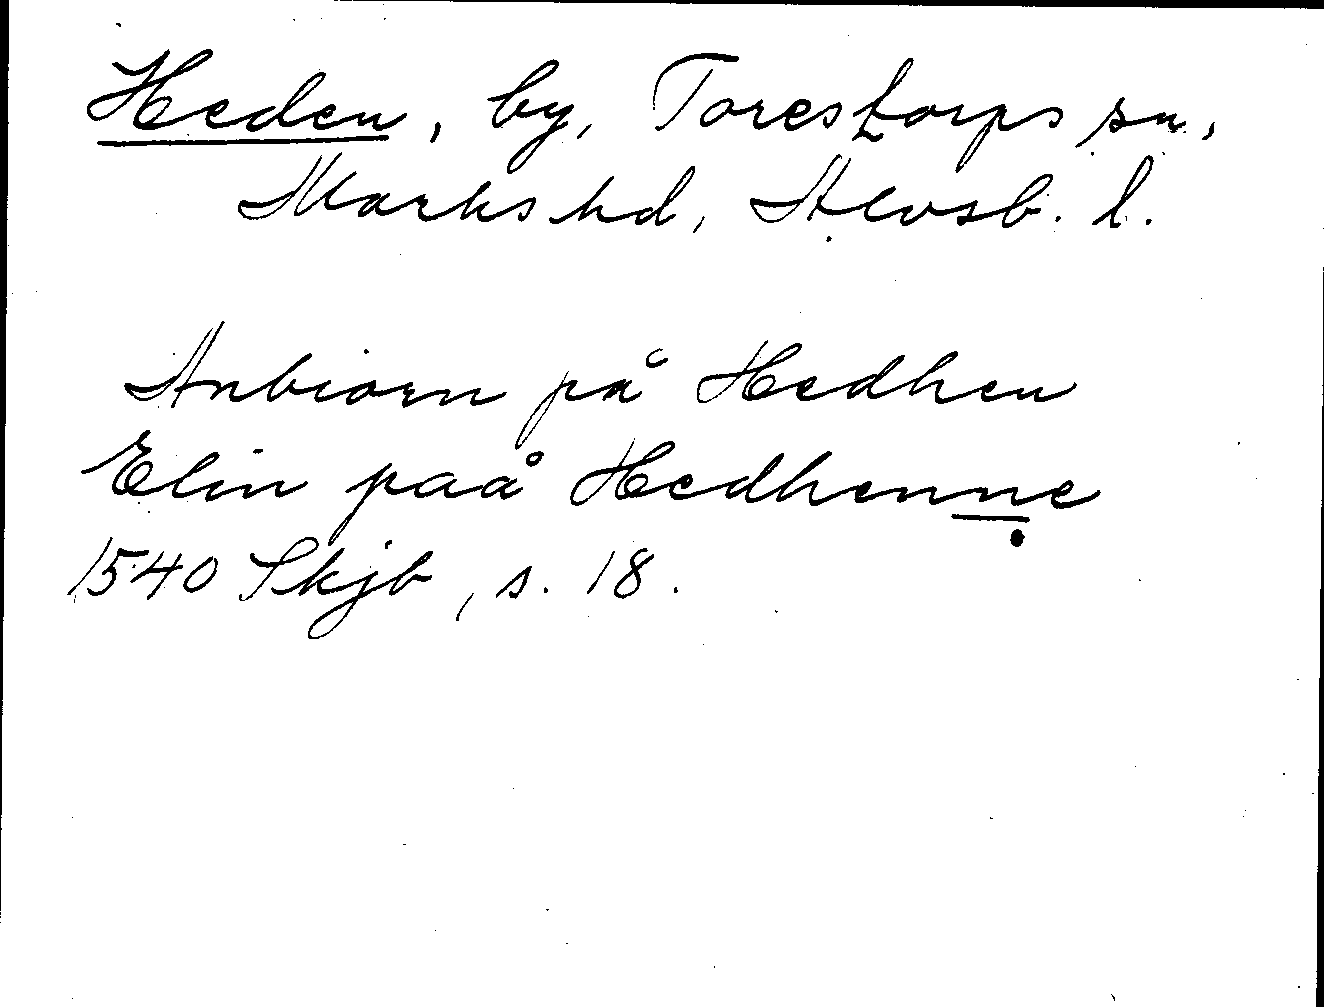 Heden, by, Torestorps sn,
Marks hd, Älvsb. l.
Anbiorn på Hedhen
Elin paå Hedhenne
1540 Skjb, s. 18.